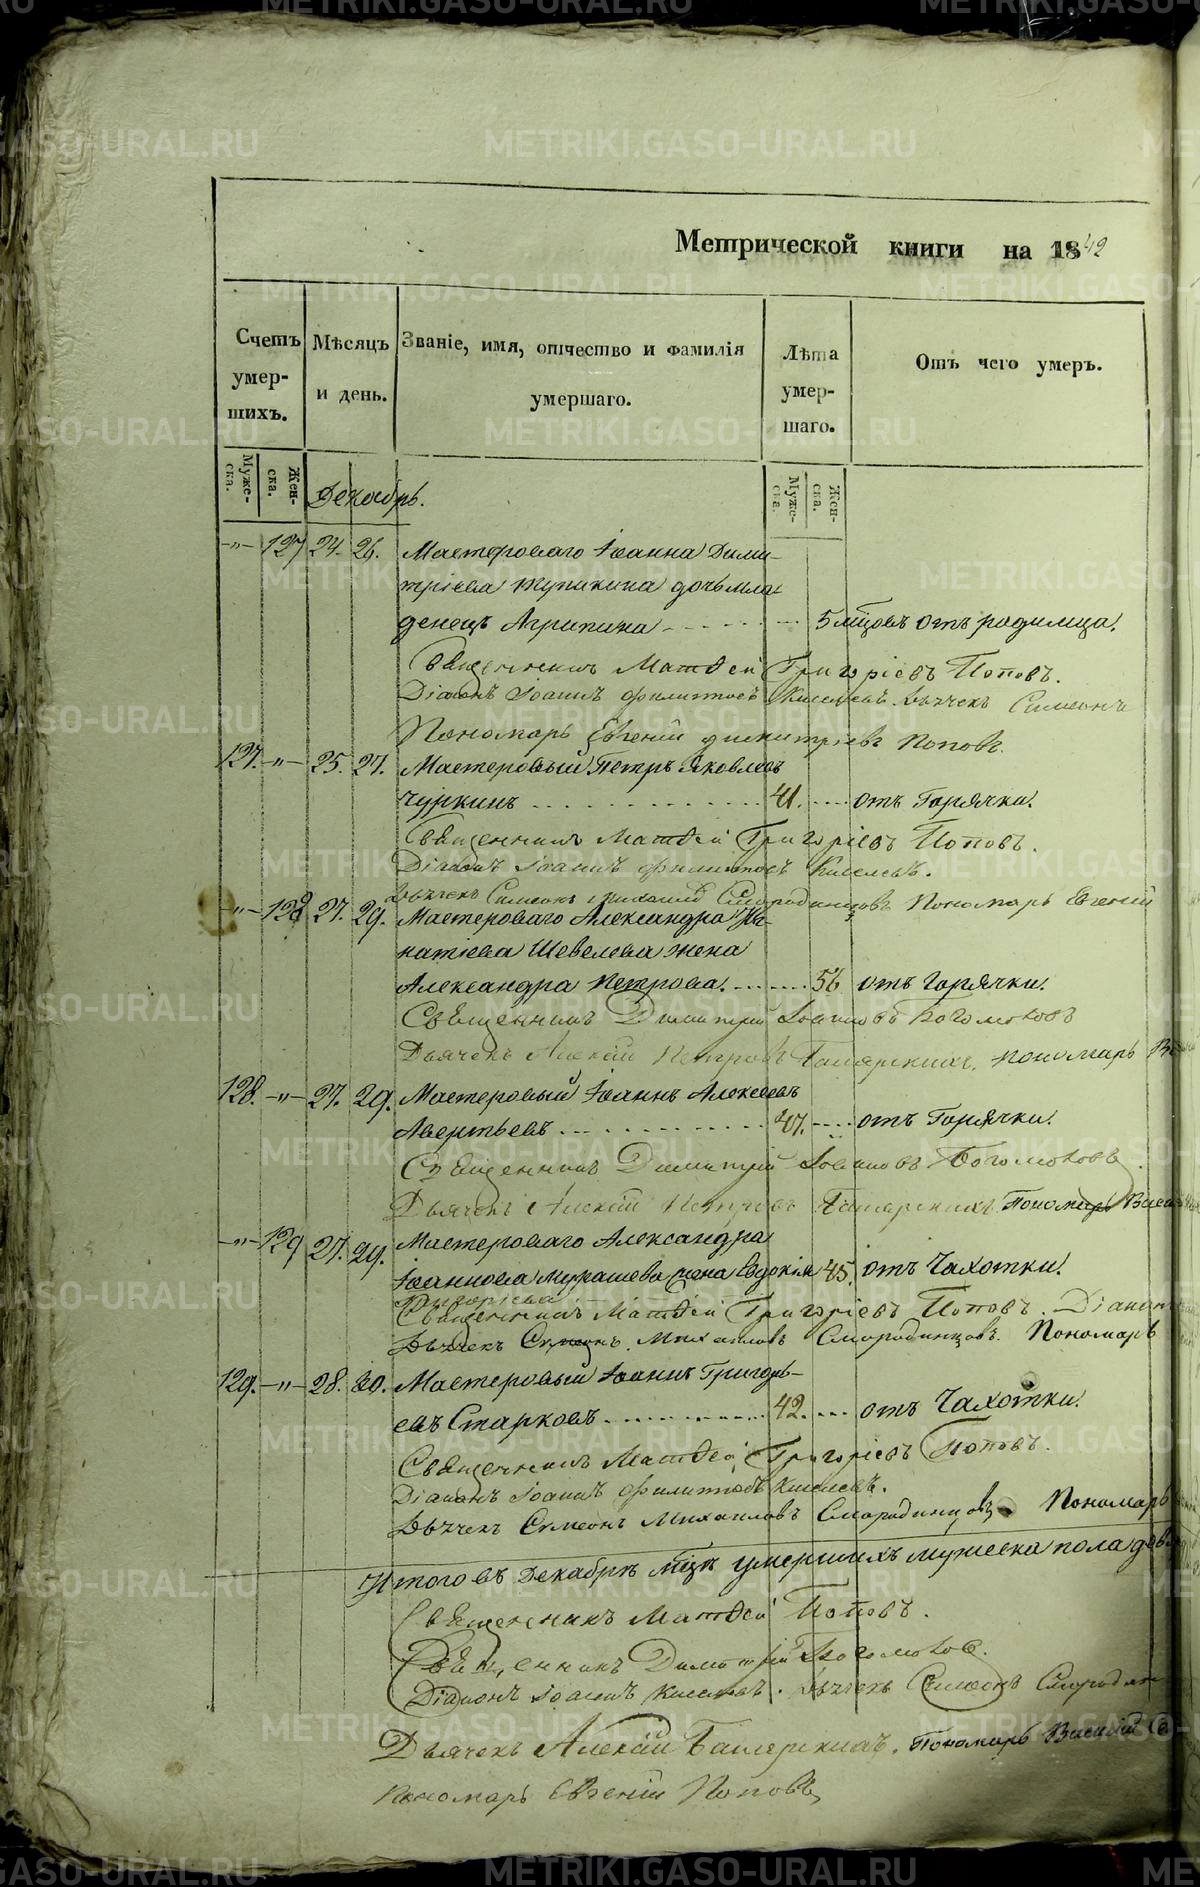 Метрической книги на 1842
Счетъ умер- шихъ.
Мѣсяцъ и день.
Званіе, имя, отчество и фамилія умершаго.
Лѣта умер- шаго.
Отъ чего умеръ.
Муже- ска.
Жен- ска.
Муже- ска.
Жен- ска.
Декабрь.
-"- 127 24. 26. Мастероваго Іоанна Дими-
тріева Тупикина дочь мла-
денецъ Агрипина 5 мцовъ Отъ родимца.
Священникъ Матѳей Григоріевъ Поповъ.
Діаконъ Іоаннъ Филиповъ Киселевъ. Дьячекъ Симеонъ
Пономарь Евгеній Димитріевъ Поповъ.
127. -"- 25. 27. Мастеровый Петръ Яковлевъ
Чуркинъ 41. отъ Горячки.
Священникъ Матѳей Григоріевъ Поповъ.
Діаконъ Іоаннъ Филиповъ Киселевъ.
Дьячекъ Симеонъ Михаилов Смородинцовъ Пономарь Евгеній
-"- 128 27. 29. Мастероваго Александра Иг-
натіева Шевелева жена
Александра Петрова. 56 отъ Горячки.
Священникъ Димитрій Іоанновъ Богомоловъ
Дьячекъ Алексій Петровъ пономарь
128. -"- 27. 29. Мастеровый Іоаннъ Алексеевъ
Аверьевъ 47. отъ Горячки.
Священникъ Димитрій Іоанновъ Богомоловъ.
Дьячекъ Алексій Петровъ Пономарь
-"- 129 27. 29. Мастероваго Александра
Іоаннова Мурашева жена Евдокія 45. отъ Чахотки.
Григорьева
Священникъ Матѳей Григоріевъ Поповъ. Діаконъ
Дьячекъ Симеонъ Михаиловъ Смородинцовъ. Пономарь
129. -"- 28. 30. Мастеровый Іоаннъ Григорь-
евъ Старковъ 42. отъ Чахотки.
Священникъ Матѳей Григоріевъ Поповъ.
Діаконъ Іоаннъ Филиповъ Киселевъ.
Дьячекъ Симеонъ Михаиловъ Смородинцовъ Пономарь
Итого въ Декабрѣ мцѣ умершихъ мужеска пола
Священникъ Матѳей Поповъ.
Священникъ Димитрій Богомоловъ.
Діаконъ Іоаннъ Киселевъ. Дьячекъ Симеонъ
Дьячекъ Алексій Пономарь Василій
Пономарь Евгеній Поповъ
METRIKI.GASO-URAL.RU